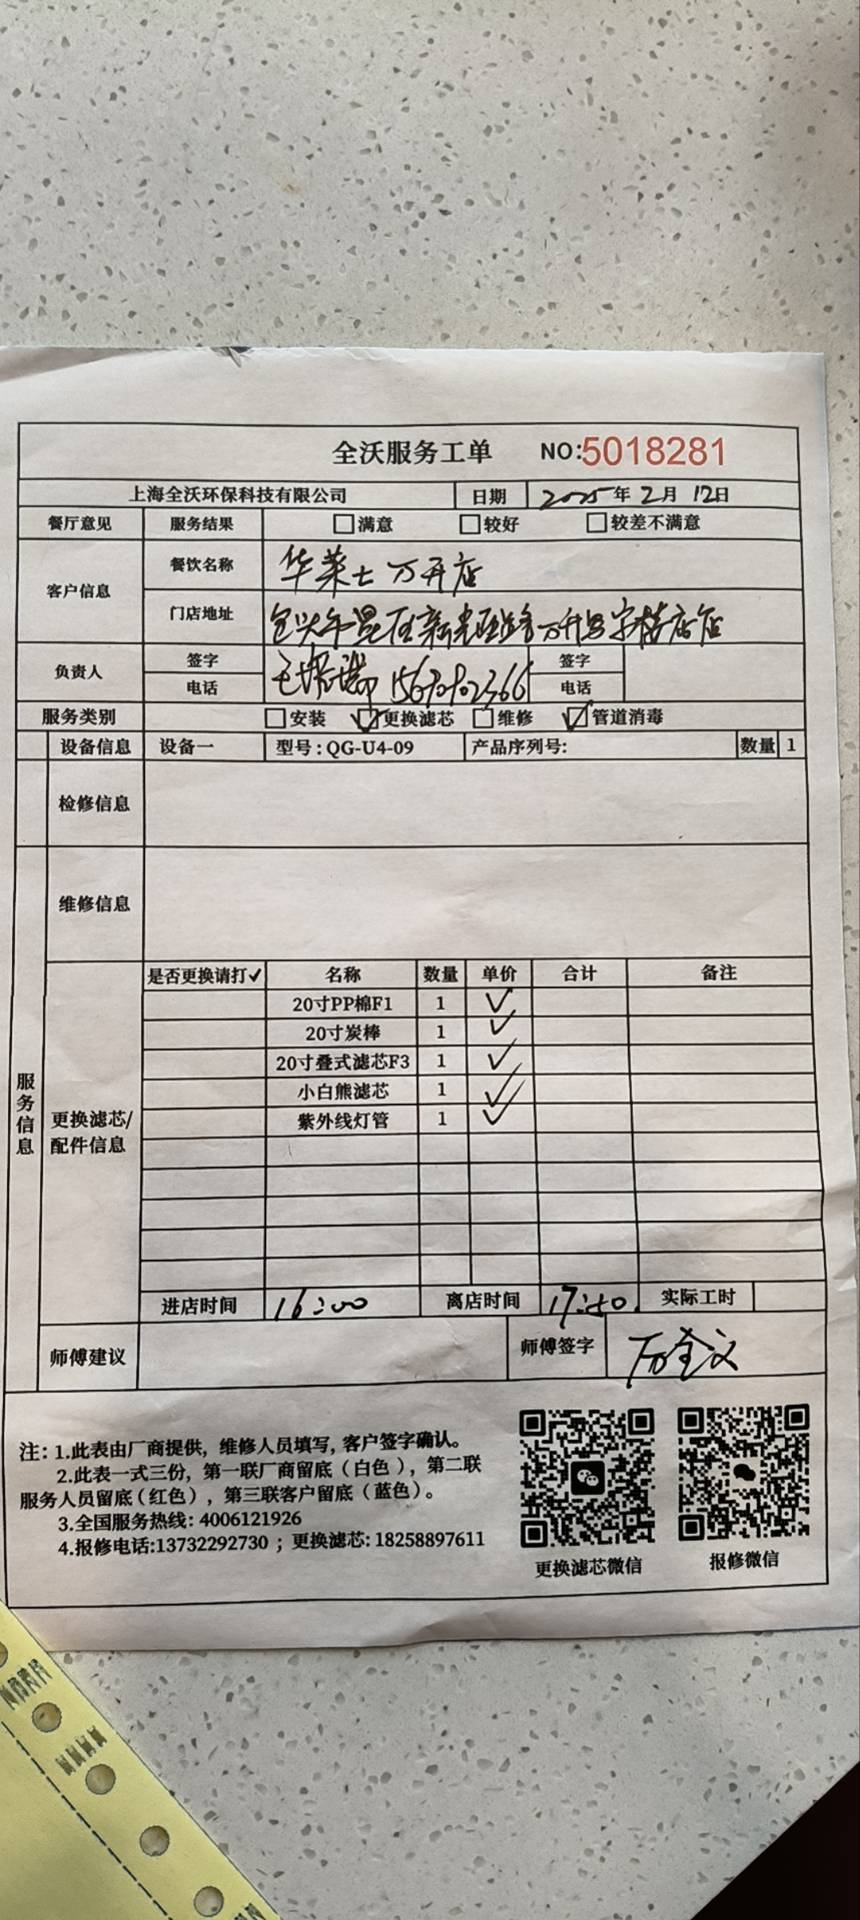 全沃服务工单 NO:5018281
上海全沃环保科技有限公司 日期 2025年2月12日
餐厅意见 服务结果 满意 较好 较差不满意
客户信息 餐饮名称 华莱士万开店
门店地址 万升写字楼底店
负责人 签字 签字
电话 电话
服务类别 安装 更换滤芯 维修 管道消毒
设备信息 设备一 型号:QG-U4-09 产品序列号: 数量 1
检修信息
维修信息
服务信息
更换滤芯/配件信息
是否更换请打✓ 名称 数量 单价 合计 备注
20寸PP棉F1 1 ✓
20寸炭棒 1 ✓
20寸叠式滤芯F3 1 ✓
小白熊滤芯 1 ✓
紫外线灯管 1 ✓
进店时间 16:00 离店时间 17:40 实际工时
师傅建议 师傅签字
注: 1.此表由厂商提供, 维修人员填写, 客户签字确认。
2.此表一式三份, 第一联厂商留底(白色), 第二联
服务人员留底(红色), 第三联客户留底(蓝色)。
3.全国服务热线: 4006121926
4.报修电话:13732292730; 更换滤芯: 18258897611
更换滤芯微信 报修微信